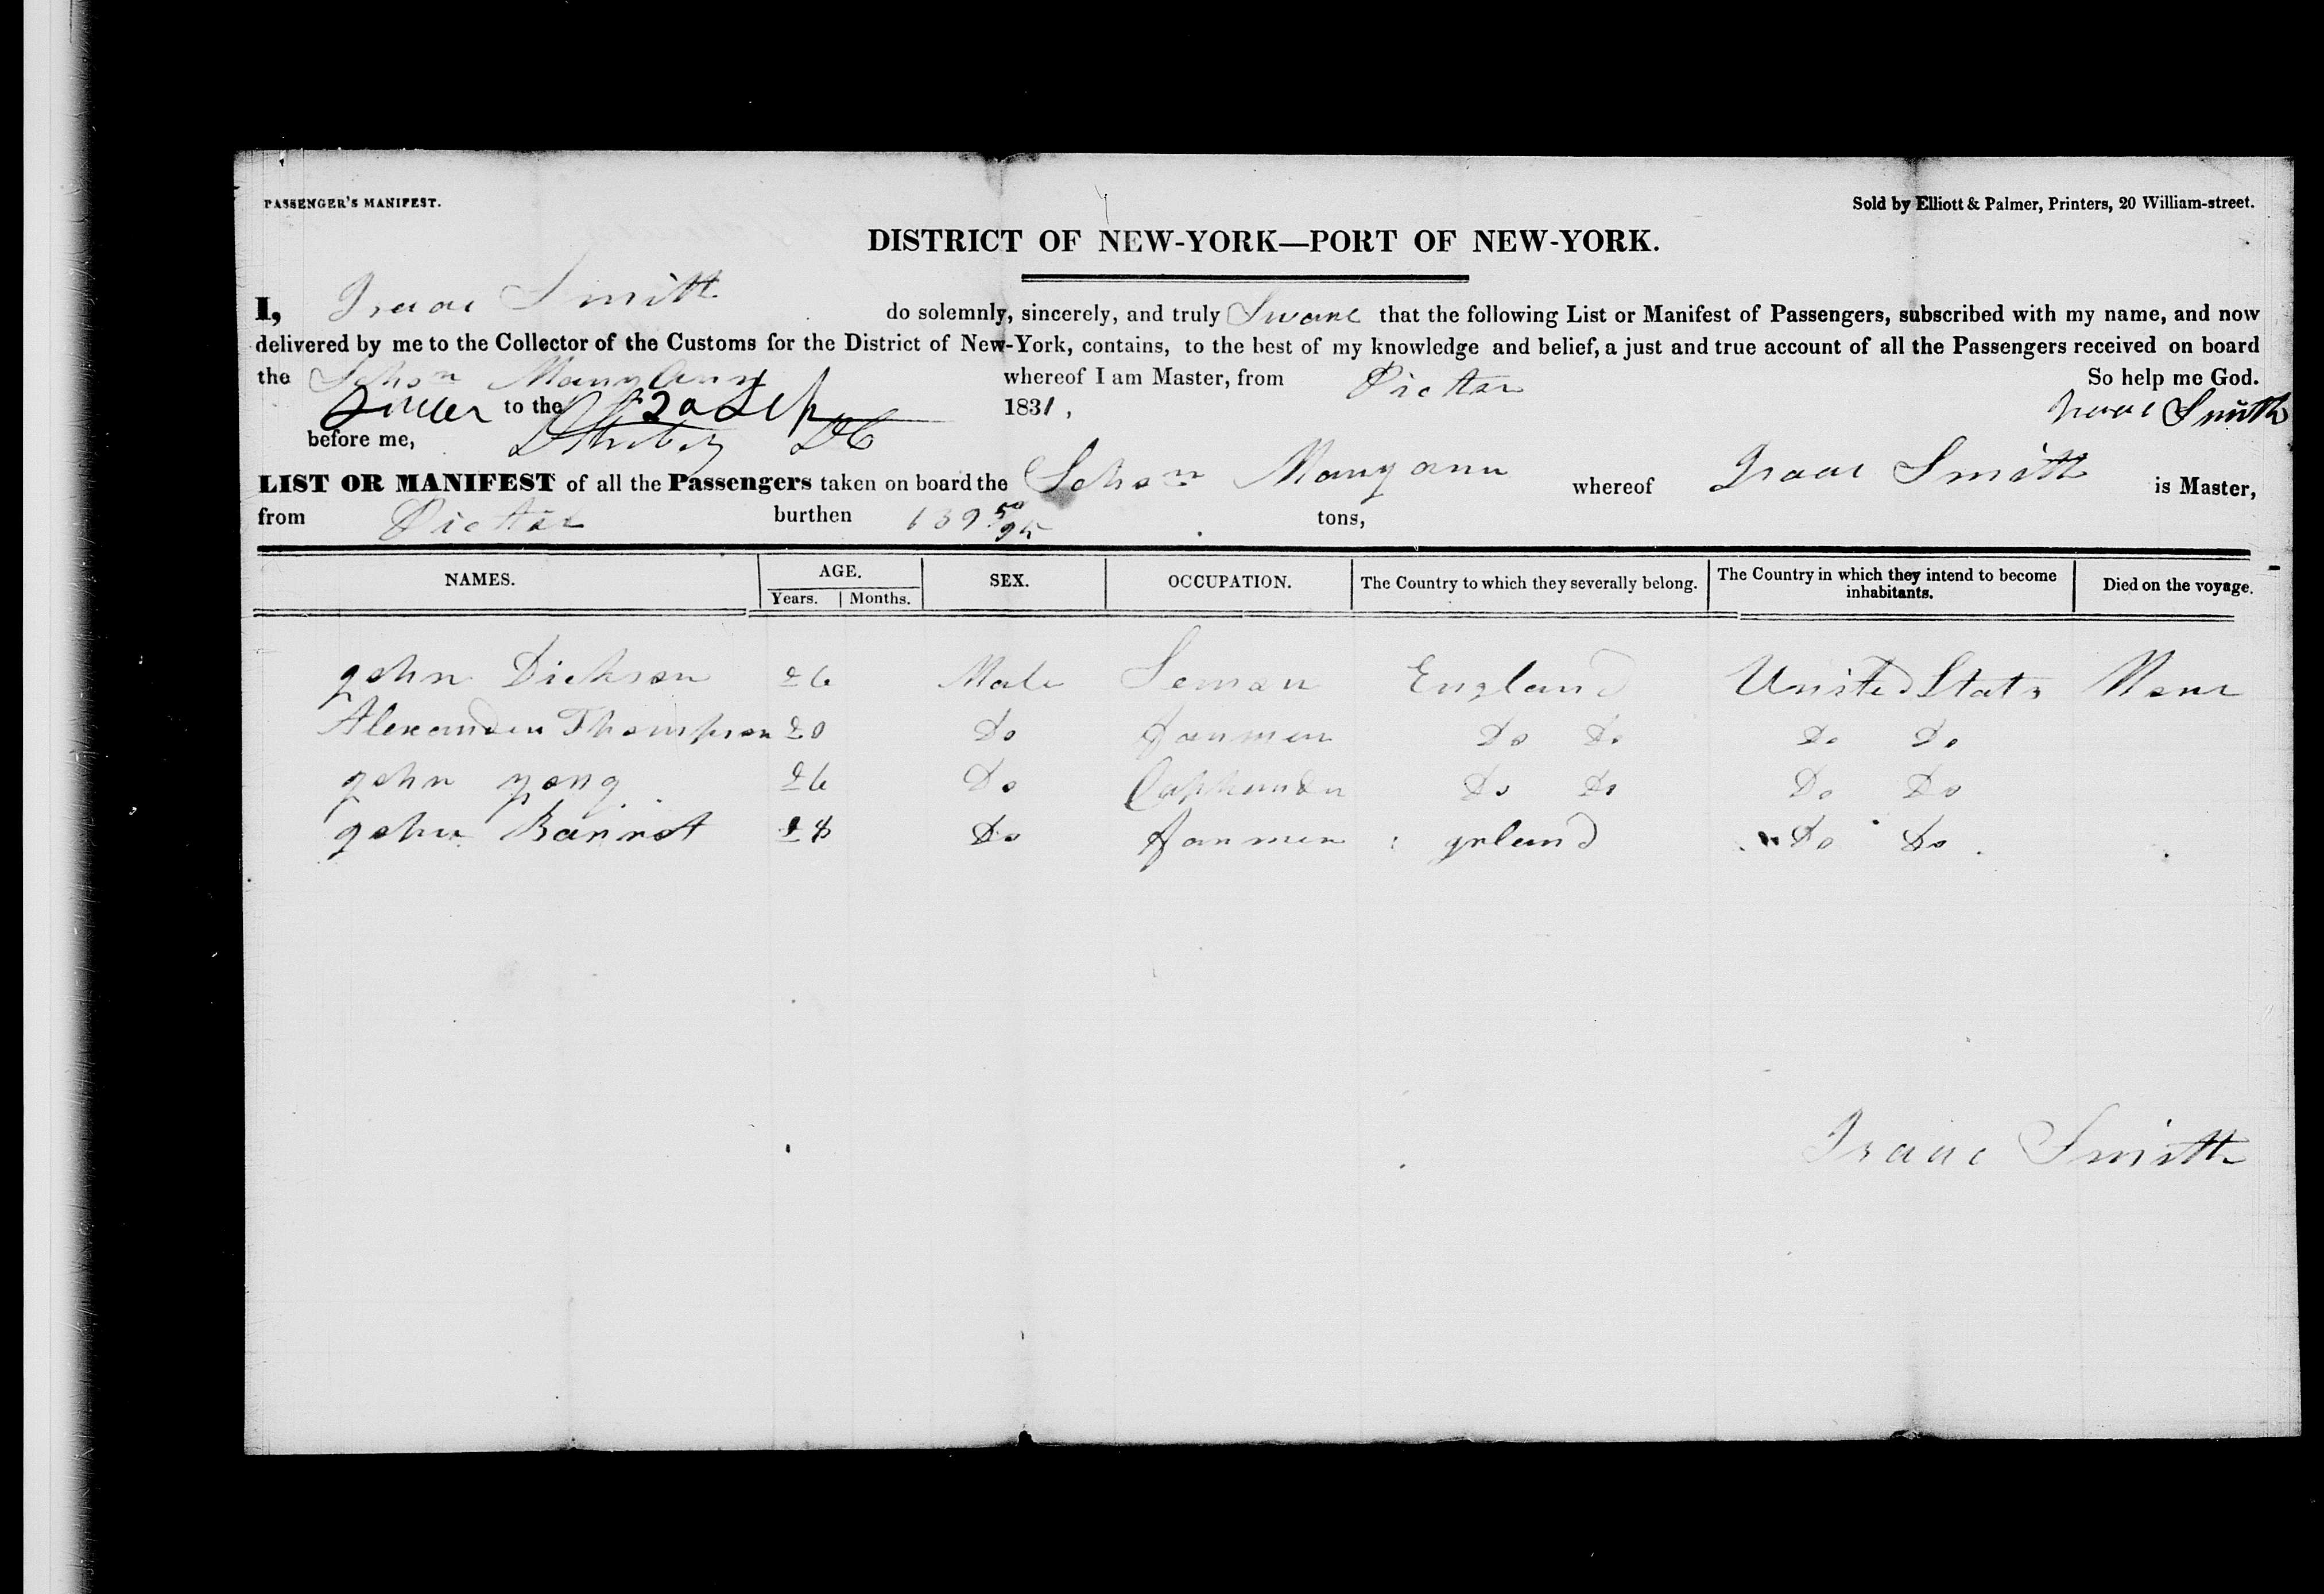 PASSENGER'S MANIFEST. Sold by Elliott & Palmer, Printers, 20 William-street.
DISTRICT OF NEW-YORK—PORT OF NEW-YORK.
I, Isaac Smith do solemnly, sincerely, and truly Sware that the following List or Manifest of Passengers, subscribed with my name, and now
delivered by me to the Collector of the Customs for the District of New-York, contains, to the best of my knowledge and belief, a just and true account of all the Passengers received on board
the Schon Mary Ann whereof I am Master, from Pictar So help me God.
to the 20 Sep 1831, Isaac Smith
before me,
LIST OR MANIFEST of all the Passengers taken on board the Schon Mary ann whereof Isaac Smith is Master,
from Picter burthen 139 50/95 tons,
NAMES. AGE. SEX. OCCUPATION. The Country to which they severally belong. The Country in which they intend to become inhabitants. Died on the voyage.
Years. Months.
John Dickson 26 Male Seman England United States None
Alexander Thompson 20 Do Farmer Do Do Do Do
John Yong 26 Do Do Do Do Do
John Barrot 28 Do Farmer Irland Do Do
Isaac Smith